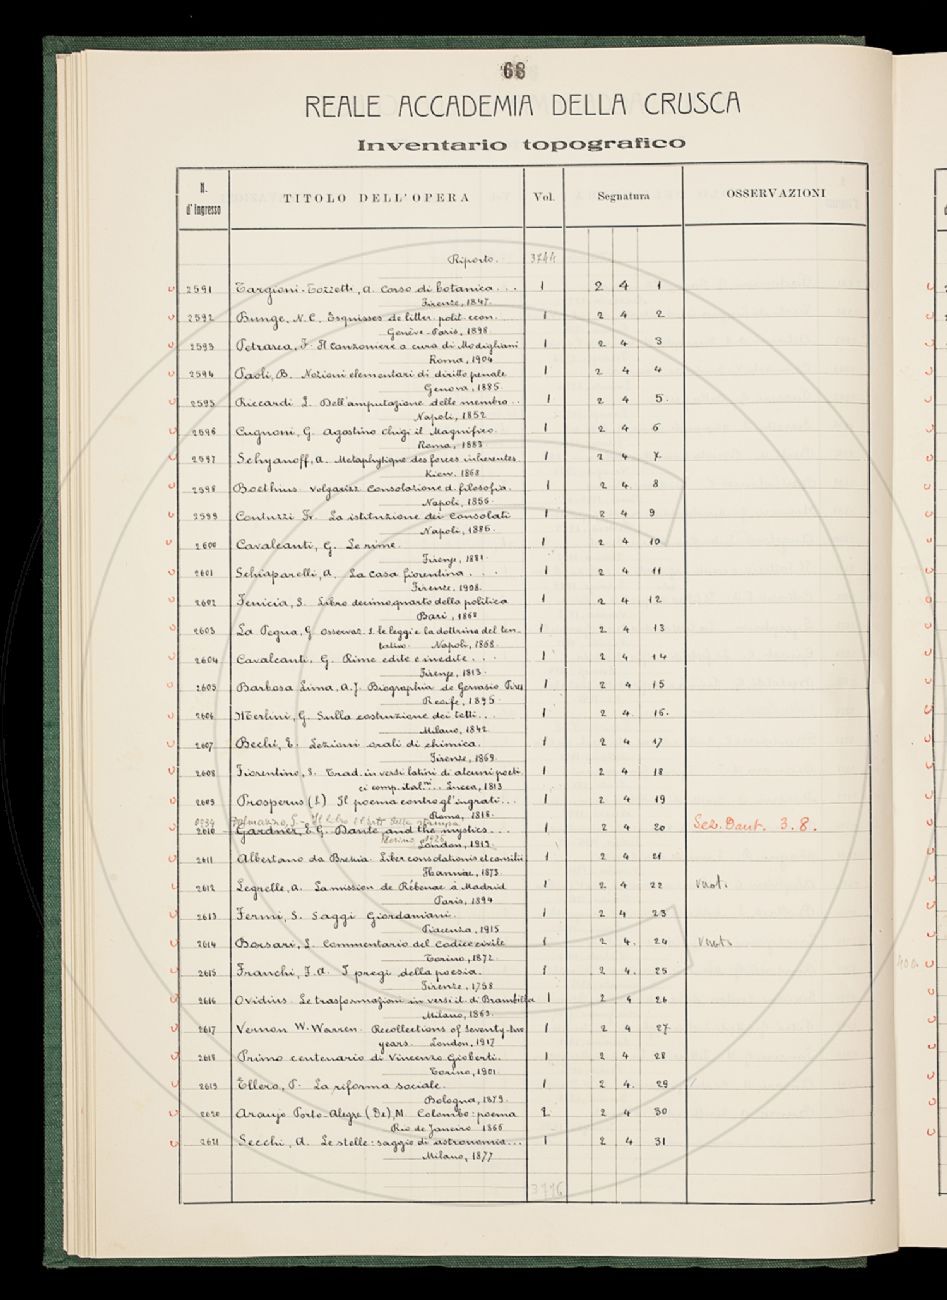 68
REALE ACCADEMIA DELLA CRUSCA
Inventario topografico
N. d'Ingresso TITOLO DELL'OPERA Vol. Segnatura OSSERVAZIONI
Riporto. 3744
2591 Targioni-Tozzetti, A. Corso di botanica... 1 2 4 1
Firenze, 1847.
2592 Bunge, N. C. Esquisses de litter. polit-econ. 1 2 4 2
Genève-Paris, 1898.
2593 Petrarca, F. Il Canzoniere a cura di Modigliani 1 2 4 3
Roma, 1904
2594 Paoli, B. Nozioni elementari di diritto penale 1 2 4 4
Genova, 1885
2595 Riccardi L. Dell'amputazione delle membra.. 1 2 4 5.
Napoli, 1852
2596 Cugnoni, G. Agostino Chigi il Magnifico. 1 2 4 6
Roma, 1883
2597 Schyanoff, A. Metaphytique des forces inherentes 1 2 4 7.
Kiew. 1868
2598 Boethius. Volgarizz. Consolazione d. filosofia. 1 2 4. 8
Napoli, 1856.
2599 Contuzzi Fr. La istituzione dei Consolati 1 2 4 9
Napoli, 1886.
2600 Cavalcanti, G. Le rime. 1 2 4 10
Firenze, 1881.
2601 Schiaparelli, A. La casa fiorentina... 1 2 4 11
Firenze, 1908.
2602 Fenicia, S. Libro decimoquarto della politica 1 2 4 12
Bari, 1868
2603 La Pegna, G. Osservaz. s. le leggi e la dottrina del ten- 1 2 4 13
tativo. Napoli, 1868.
2604 Cavalcanti, G. Rime edite e inedite... 1 2 4 14
Firenze, 1813.
2605 Barbosa Lima, A. J. Biographia de Gervasio Pires 1 2 4 15
Recife, 1895.
2606 Merlini, G. Sulla costruzione dei tetti... 1 2 4. 16.
Milano, 1842.
2607 Bechi, E. Lezioni orali di chimica. 1 2 4 17
Firenze, 1869.
2608 Fiorentino, S. Trad. in versi latini di alcuni poeti 1 2 4 18
ci comp. ital.ni.. Lucca, 1813
2609 Prosperus (S.) Il poema contro gl'ingrati... 1 2 4 19
Roma, 1818.
2610 Gardner, E. G. Dante and the mystics... 1 2 4 20 Sez. Dant. 3. 8.
London, 1913.
2611 Albertano da Brescia. Liber consolationis et consilii 1 2 4 21
Hanniae, 1873.
2612 Legrelle, A. La mission de Rébenac à Madrid 1 2 4 22 vuot.
Paris, 1894
2613 Fermi, S. Saggi Giordaniani. 1 2 4 23
Piacenza, 1915
2614 Borsari, L. Commentario del Codice civile 1 2 4. 24
Torino, 1872.
2615 Franchi, F. A. I pregi della poesia. 1 2 4. 25
Firenze, 1758
2616 Ovidius. Le trasformazioni in versi it. di Brambilla 1 2 4 26
Milano, 1863.
2617 Vernon W. Warren. Recollections of seventy-two 1 2 4 27
years. London, 1917
2618 Primo centenario di Vincenzo Gioberti. 1 2 4 28
Torino, 1901.
2619 Ellero, P. La riforma sociale. 1 2 4. 29
Bologna, 1879.
2620 Araujo Porto-Alegre (De), M. Colombo: poema 2 2 4 30
Rio de Janeiro 1866
2621 Secchi, A. Le stelle: saggio di astronomia... 1 2 4 31
Milano, 1877
3776